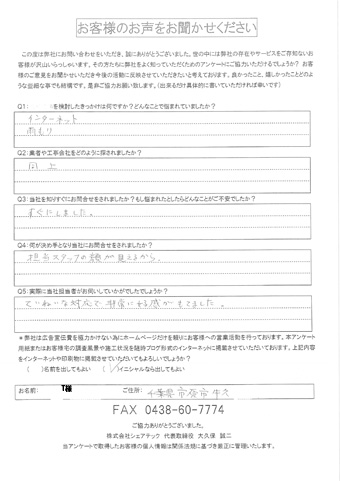 お客様のお声をお聞かせください
この度は弊社にお問い合わせをいただき、誠にありがとうございました。世の中には弊社の存在やサービスをご存知ないお
客様が沢山いらっしゃいます。その方たちに弊社をよく知っていただくためのアンケートにご協力いただけるでしょうか？お
客様のご意見をお聞かせいただき今後の活動に反映させていただきたいと考えております。良かったこと、嬉しかったことどのよ
うな些細な事でも結構です。是非ご協力お願い致します。（出来るだけ具体的に書いていただければ幸いです）
Q1： を検討したきっかけは何ですか？どんなことで悩まれていましたか？
インターネット
雨もり
Q2：業者や工事会社をどのように探されましたか？
同上
Q3：当社を知りすぐにお問合せをされましたか？もし悩まれたとしたらどんなことがご不安でしたか？
すぐにしました。
Q4：何が決め手となり当社にお問合せをされましたか？
担当スタッフの顔が見えるから、
Q5：実際に当社担当者がお伺いしていかがでしたでしょうか？
ていねいな対応で非常に好感がもてました。
＊弊社は広告宣伝費を極力かけない為にホームページだけを頼りにお客様への営業活動を行っております。本アンケート
用紙またはお客様宅の調査風景や施工状況を随時ブログ形式のインターネットに掲載させていただいております。上記内容
をインターネットや印刷物に掲載させていただいてもよろしいでしょうか？
（　）名前を出してもよい （✓）イニシャルなら出してもよい
お名前： T様 ご住所： 千葉県市原市牛久
FAX 0438-60-7774
ご協力ありがとうございました。
株式会社シェアテック 代表取締役 大久保 誠二
当アンケートで取得したお客様の個人情報は関係法規に基づき厳正に管理いたします。